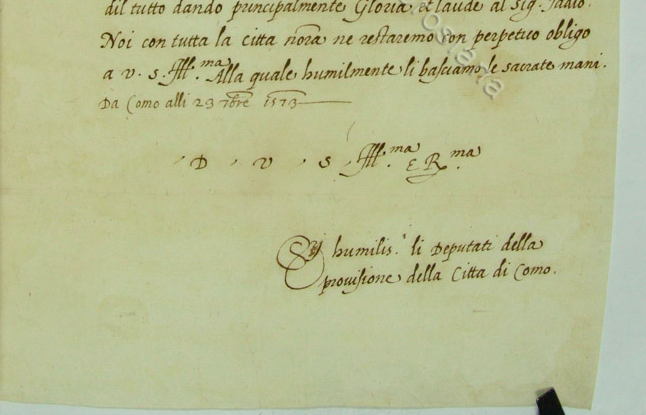 dil tutto dando principalmente Gloria et laude al Sig. Iddio.
Noi con tutta la citta nora ne restaremo con perpetuo obligo
a v. s. Ill.ma Alla quale humilmente li basciamo le sacrate mani.
Da Como alli 23 7bre 1573
D v s Ill.ma e R.ma
humilis.i li Deputati della
provisione della Citta di Como.